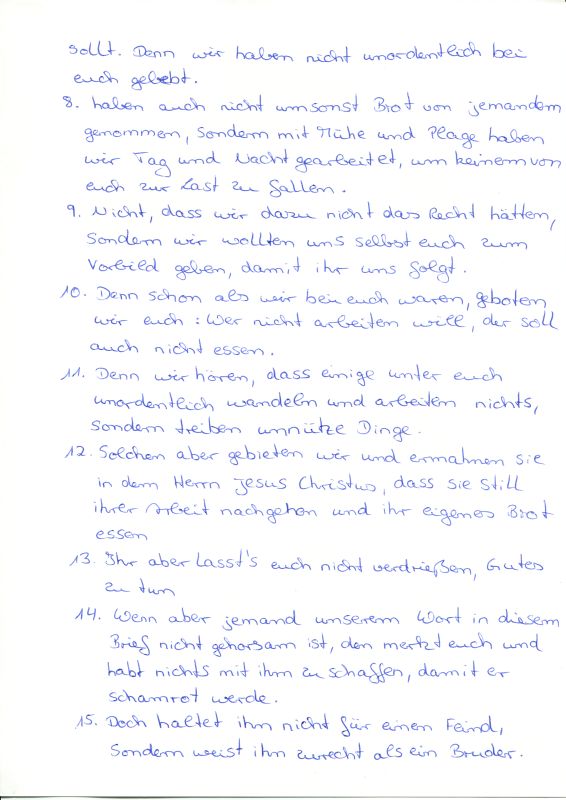 sollt. Denn wir haben nicht unordentlich bei
euch gelebt.
8. haben auch nicht umsonst Brot von jemandem
genommen, sondern mit Mühe und Plage haben
wir Tag und Nacht gearbeitet, um keinem von
euch zur Last zu fallen.
9. Nicht, dass wir dazu nicht das Recht hätten,
sondern wir wollten uns selbst euch zum
Vorbild geben, damit ihr uns folgt.
10. Denn schon als wir bei euch waren, geboten
wir euch: Wer nicht arbeiten will, der soll
auch nicht essen.
11. Denn wir hören, dass einige unter euch
unordentlich wandeln und arbeiten nichts,
sondern treiben unnütze Dinge.
12. Solchen aber gebieten wir und ermahnen sie
in dem Herrn Jesus Christus, dass sie still
ihrer Arbeit nachgehen und ihr eigenes Brot
essen
13. Ihr aber lasst's euch nicht verdrießen, Gutes
zu tun
14. Wenn aber jemand unserem Wort in diesem
Brief nicht gehorsam ist, den merkt euch und
habt nichts mit ihm zu schaffen, damit er
schamrot werde.
15. Doch haltet ihn nicht für einen Feind,
sondern weist ihn zurecht als ein Bruder.